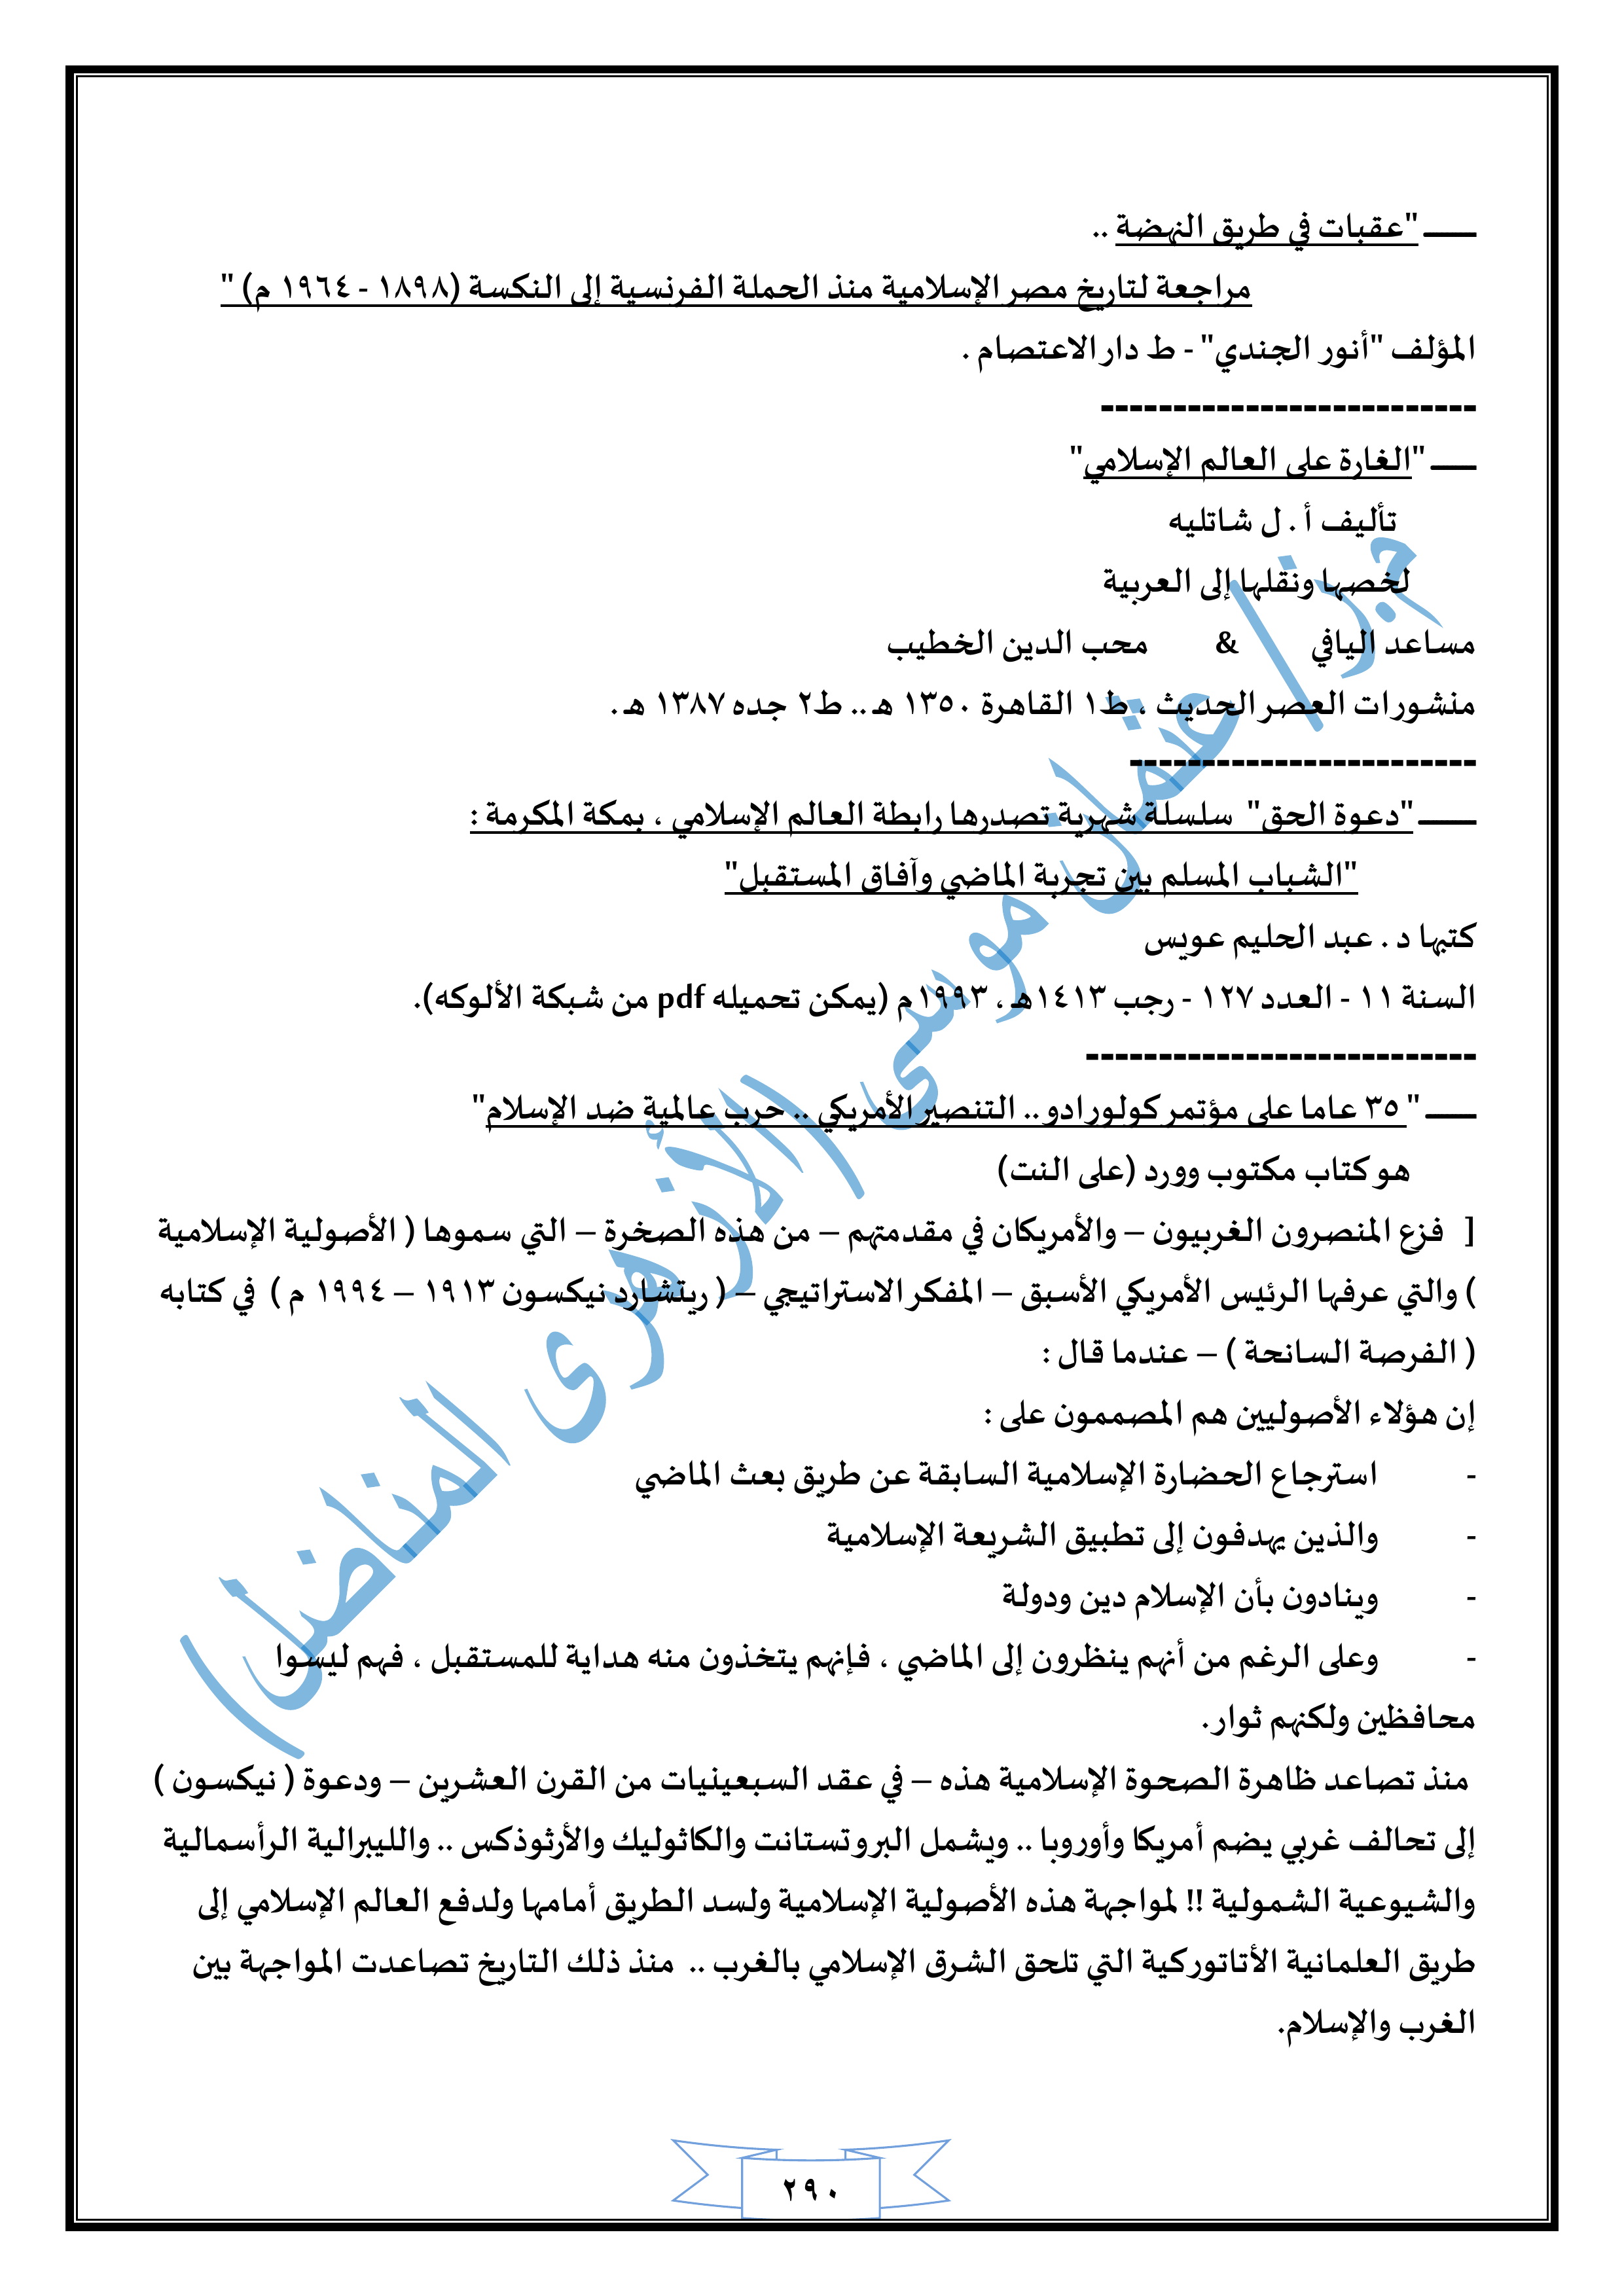 ـــــ "عقبات في طريق النهضة ..
مراجعة لتاريخ مصر الإسلامية منذ الحملة الفرنسية إلى النكسة (١٨٩٨ - ١٩٦٤ م) "
المؤلف "أنور الجندي" - ط دار الاعتصام .
--------------------------
ـــــ "الغارة على العالم الإسلامي"
تأليف أ . ل شاتليه
لخصها ونقلها إلى العربية
مساعد اليافي & محب الدين الخطيب
منشورات العصر الحديث ، ط١ القاهرة ١٣٥٠ هـ .. ط٢ جده ١٣٨٧ هـ .
------------------------
ـــــ "دعوة الحق" سلسلة شهرية تصدرها رابطة العالم الإسلامي ، بمكة المكرمة :
"الشباب المسلم بين تجربة الماضي وآفاق المستقبل"
كتبها د . عبد الحليم عويس
السنة ١١ - العدد ١٢٧ - رجب ١٤١٣هـ ، ١٩٩٣م (يمكن تحميله pdf من شبكة الألوكه).
---------------------------
ـــــ " ٣٥ عاما على مؤتمر كولورادو .. التنصير الأمريكي .. حرب عالمية ضد الإسلام"
هو كتاب مكتوب وورد (على النت)
[ فزع المنصرون الغربيون – والأمريكان في مقدمتهم – من هذه الصخرة – التي سموها ( الأصولية الإسلامية
) والتي عرفها الرئيس الأمريكي الأسبق – المفكر الاستراتيجي – ( ريتشارد نيكسون ١٩١٣ – ١٩٩٤ م ) في كتابه
( الفرصة السانحة ) – عندما قال :
إن هؤلاء الأصوليين هم المصممون على :
- استرجاع الحضارة الإسلامية السابقة عن طريق بعث الماضي
- والذين يهدفون إلى تطبيق الشريعة الإسلامية
- وينادون بأن الإسلام دين ودولة
- وعلى الرغم من أنهم ينظرون إلى الماضي ، فإنهم يتخذون منه هداية للمستقبل ، فهم ليسوا
محافظين ولكنهم ثوار .
منذ تصاعد ظاهرة الصحوة الإسلامية هذه – في عقد السبعينيات من القرن العشرين – ودعوة ( نيكسون )
إلى تحالف غربي يضم أمريكا وأوروبا .. ويشمل البروتستانت والكاثوليك والأرثوذكس .. والليبرالية الرأسمالية
والشيوعية الشمولية !! لمواجهة هذه الأصولية الإسلامية ولسد الطريق أمامها ولدفع العالم الإسلامي إلى
طريق العلمانية الأتاتوركية التي تلحق الشرق الإسلامي بالغرب .. منذ ذلك التاريخ تصاعدت المواجهة بين
الغرب والإسلام.
عثمان موسى (الأزهرى المناضل)
٢٩٠